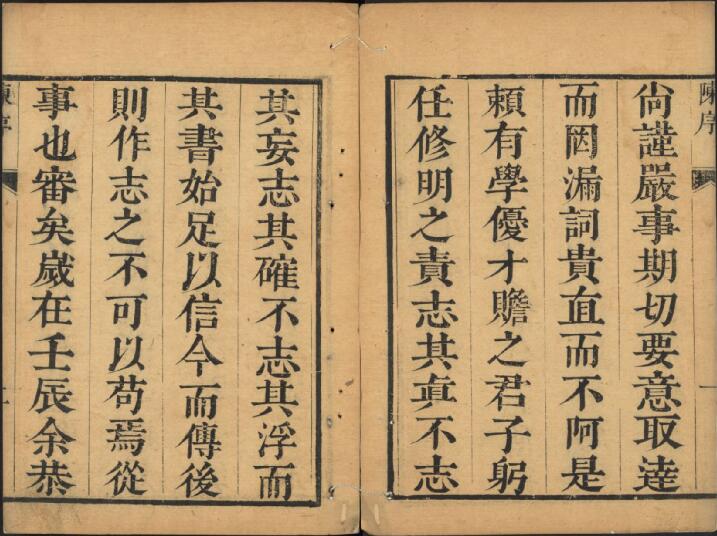 陳序
尚謹嚴事期切要意取達
而罔漏詞貴直而不阿是
頼有學優才贍之君子躬
任修明之責志其眞不志
一
其妄志其確不志其浮而
其書始足以信今而傳後
則作志之不可以苟焉從
事也審矣嵗在壬辰余恭
陳序